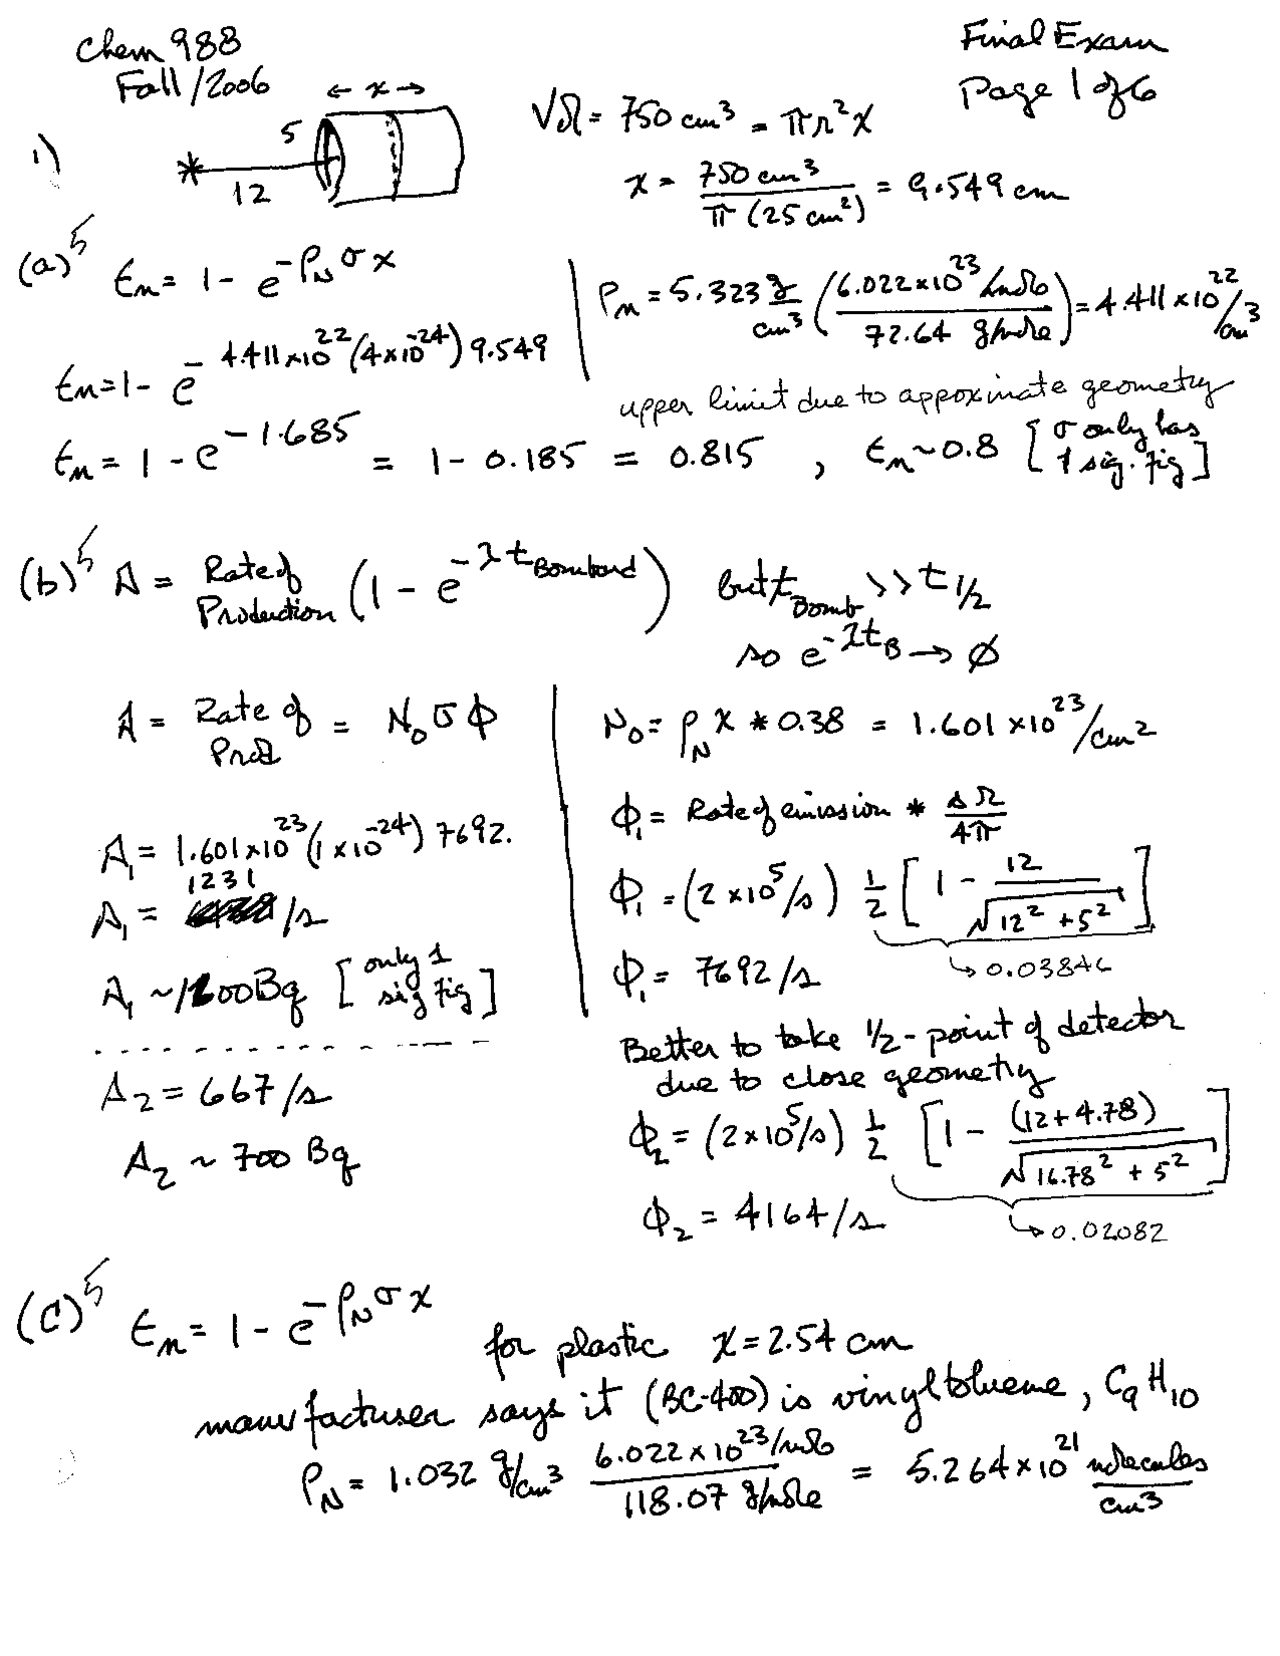 Chem 988
Fall/2006
Final Exam
Page 1 of 6
1)
← x →
5
12
Vol = 750 cm³ = πr²x
x = 750 cm³ / π (25 cm²) = 9.549 cm
(a) 5 εn = 1 - e^-ρN σ x
ρn = 5.323 g/cm³ (6.022x10^23 /mole / 72.64 g/mole) = 4.411x10^22 /cm³
εn = 1 - e^- 4.411x10^22 (4x10^-24) 9.549
upper limit due to approximate geometry
εn = 1 - e^-1.685 = 1 - 0.185 = 0.815 , εn ~ 0.8 [σ only has 1 sig. fig]
(b) 5 A = Rate of Production (1 - e^-λ tBombard) but tBomb >> t1/2
so e^-λtB → ∅
A = Rate of Prod = N₀ σ ϕ
N₀ = ρN x * 0.38 = 1.601 x10^23 /cm²
ϕ₁ = Rate of emission * ΔΩ/4π
A₁ = 1.601x10^23 (1x10^-24) 7692.
ϕ₁ = (2x10^5/s) 1/2 [1 - 12/√(12² + 5²)]
1231
A₁ = /s
↳ 0.03846
ϕ₁ = 7692/s
A₁ ~ 1200 Bq [only 1 sig fig]
Better to take 1/2-point of detector
due to close geometry
A₂ = 667/s
ϕ₂ = (2x10^5/s) 1/2 [1 - (12+4.78)/√(16.78² + 5²)]
A₂ ~ 700 Bq
↳ 0.02082
ϕ₂ = 4164/s
(c) 5 εn = 1 - e^-ρN σ x
for plastic x = 2.54 cm
manufacturer says it (BC-400) is vinyltoluene, C9H10
ρN = 1.032 g/cm³ 6.022x10^23/mole / 118.07 g/mole = 5.264x10^21 molecules/cm³